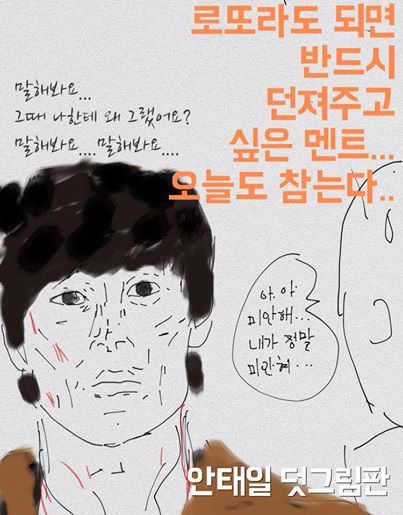 로또라도 되면
반드시
던져주고
싶은 멘트...
오늘도 참는다..
말해봐요...
그때 나한테 왜 그랬어요?
말해봐요....말해봐요....
아.아.
미안해...
내가 정말
미안혀...
안태일 덧그림판